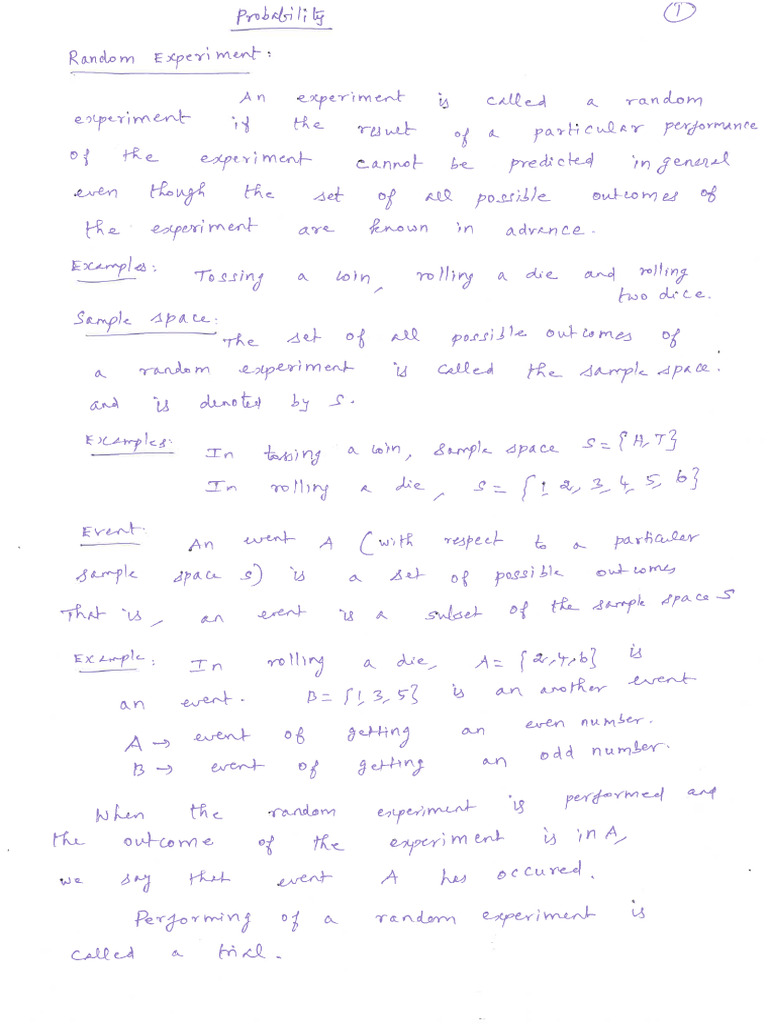 Probability
1
Random Experiment:
An experiment is called a random
experiment if the result of a particular performance
of the experiment cannot be predicted in general
even though the set of all possible outcomes of
the experiment are known in advance.
Examples: Tossing a coin, rolling a die and rolling
two dice.
Sample space:
The set of all possible outcomes of
a random experiment is called the sample space.
and is denoted by S.
Examples: In tossing a coin, sample space S={H,T}
In rolling a die, S={1,2,3,4,5,6}
Event: An event A (with respect to a particular
sample space S) is a set of possible outcomes
That is, an event is a subset of the sample space S
Example: In rolling a die, A={2,4,6} is
an event. B={1,3,5} is an another event
A→ event of getting an even number.
B→ event of getting an odd number.
When the random experiment is performed and
the outcome of the experiment is in A,
we say that event A has occured.
Performing of a random experiment is
called a trial.